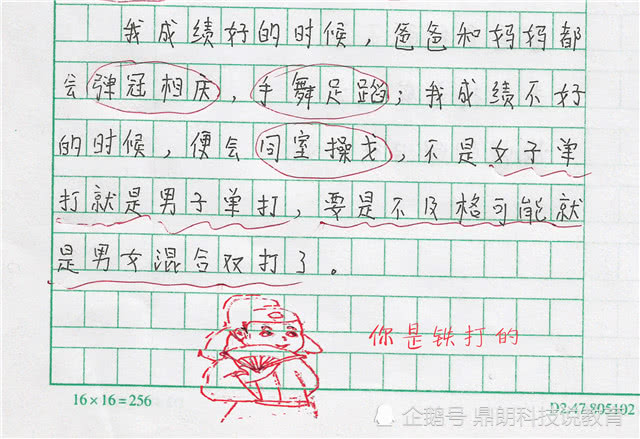 我成绩好的时候，爸爸和妈妈都
会弹冠相庆，手舞足蹈；我成绩不好
的时候，便会同室操戈，不是女子单
打就是男子单打，要是不及格可能就
是男女混合双打了。
你是铁打的
16×16=256
D2.47.805102
企鹅号 鼎朗科技说教育